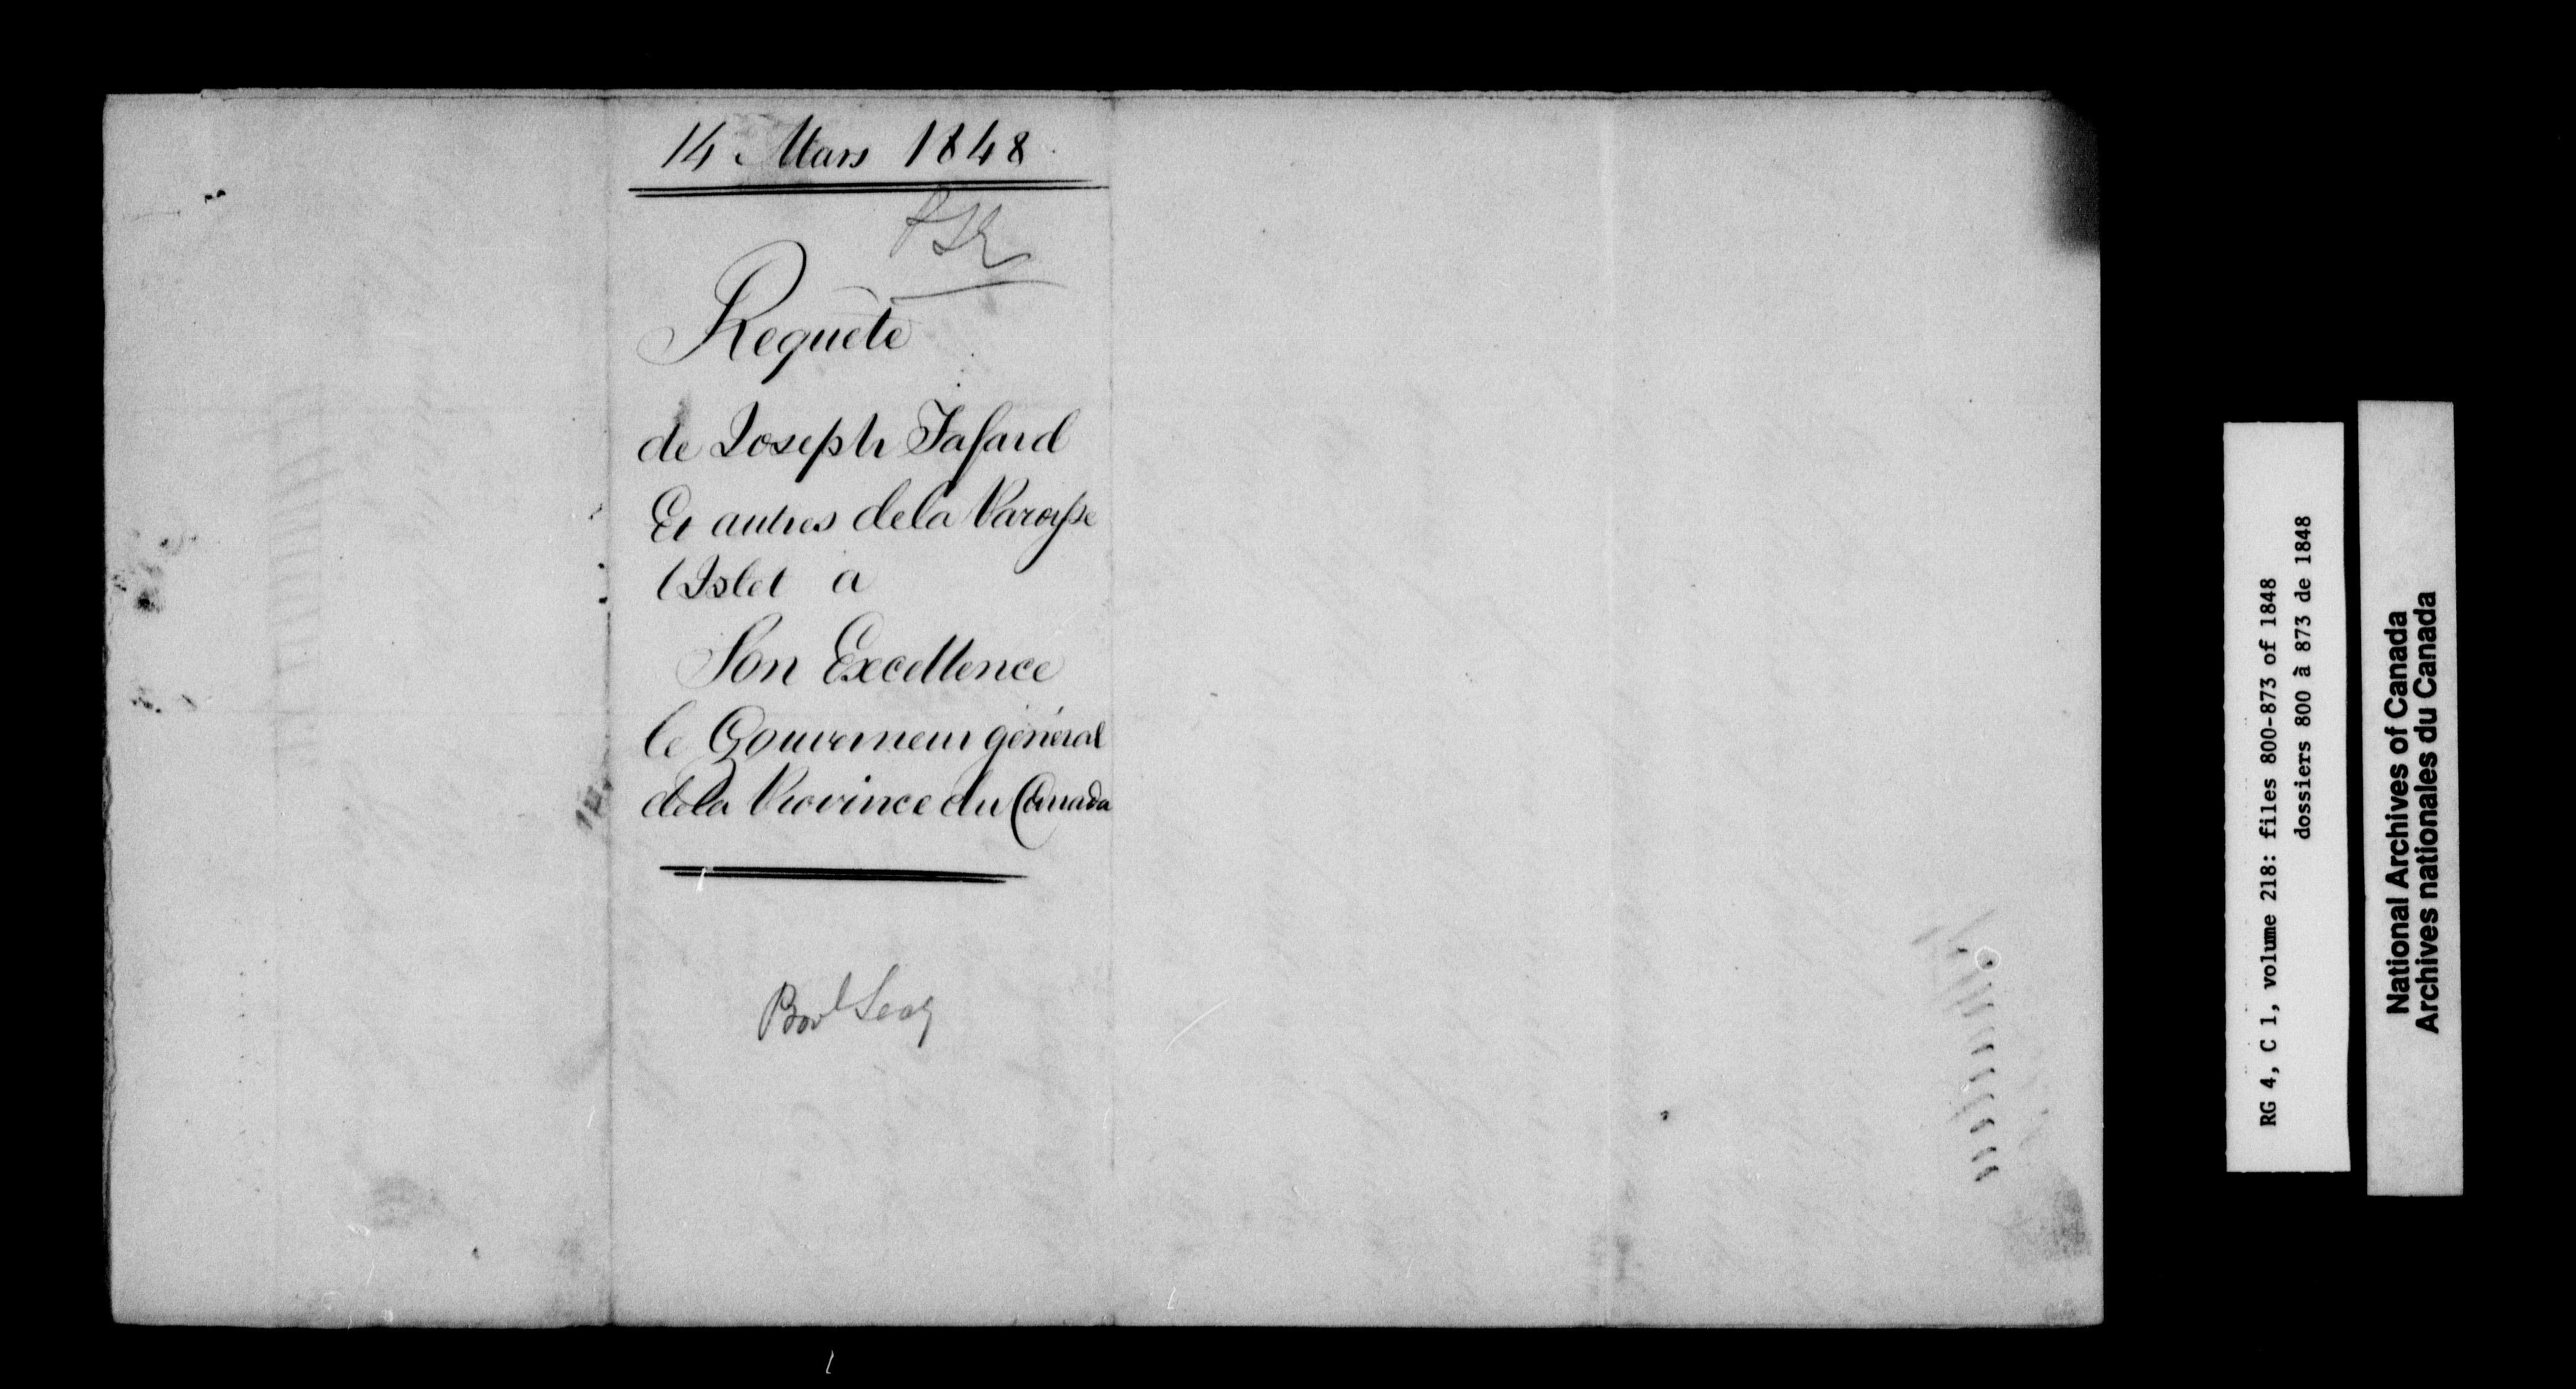 14 Mars 1848
Requête
de Joseph Fafard
Et autres dela Paroisse
l'Islet a
Son Excellence
le Gouverneur général
dela Province du Canada
RG 4, C 1, volume 218: files 800-873 of 1848
dossiers 800 à 873 de 1848
National Archives of Canada
Archives nationales du Canada